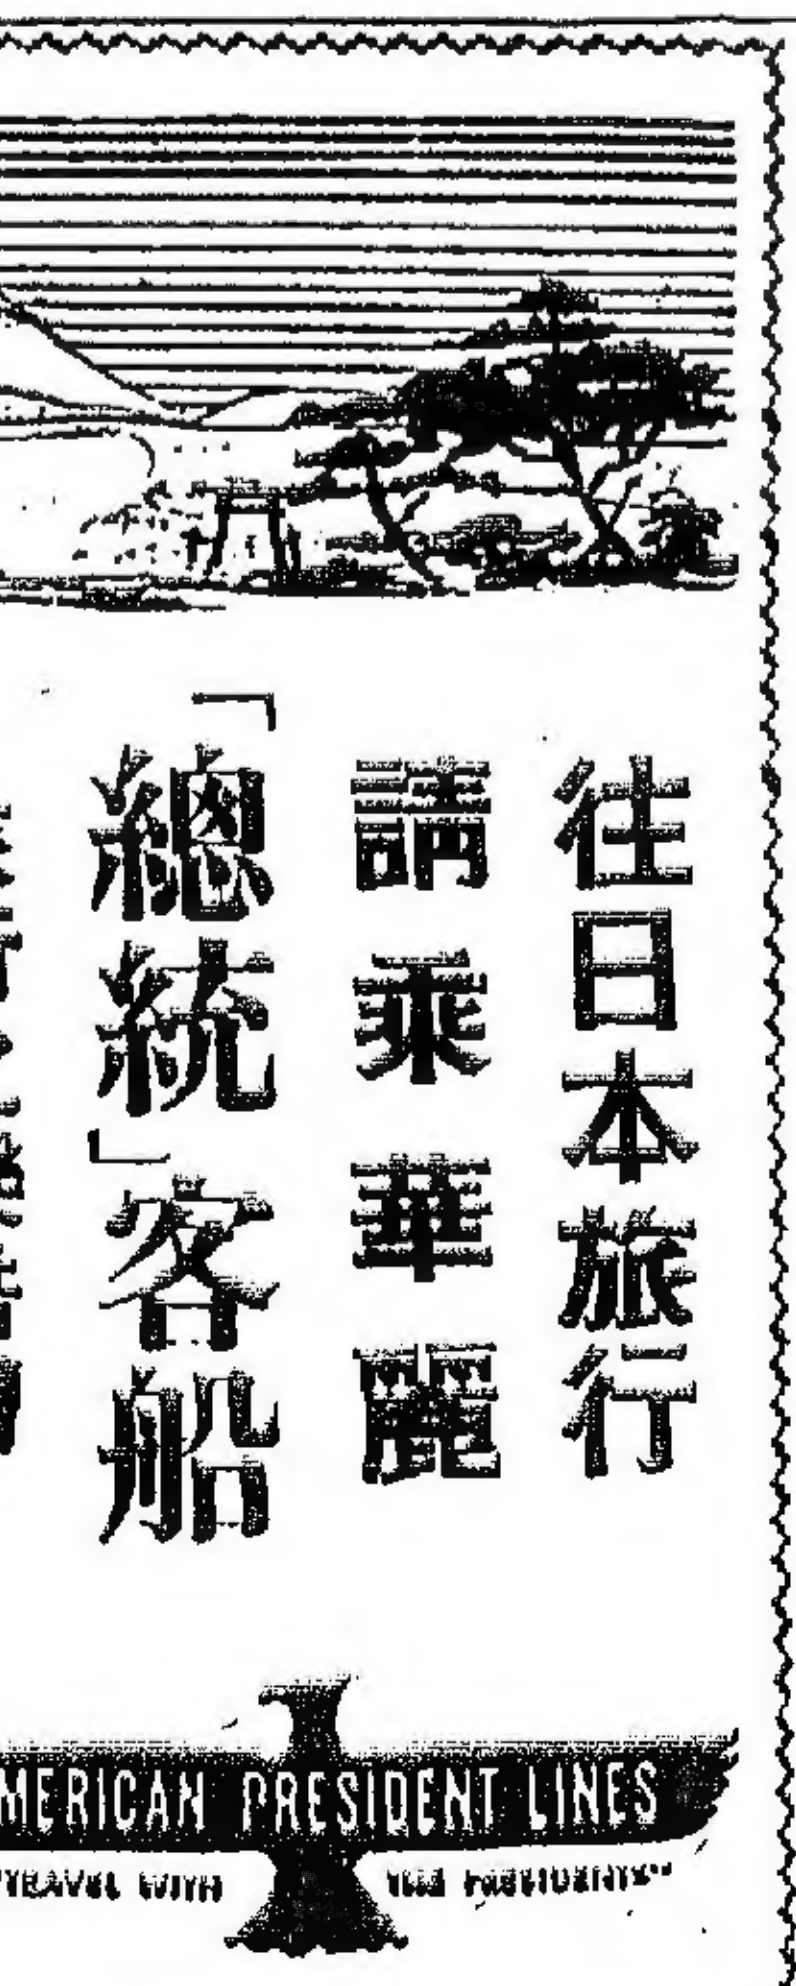 往日本旅行
請乘華麗
「總統」客船
MERICAN PRESIDENT LINES
"TRAVEL WITH THE PRESIDENTS"